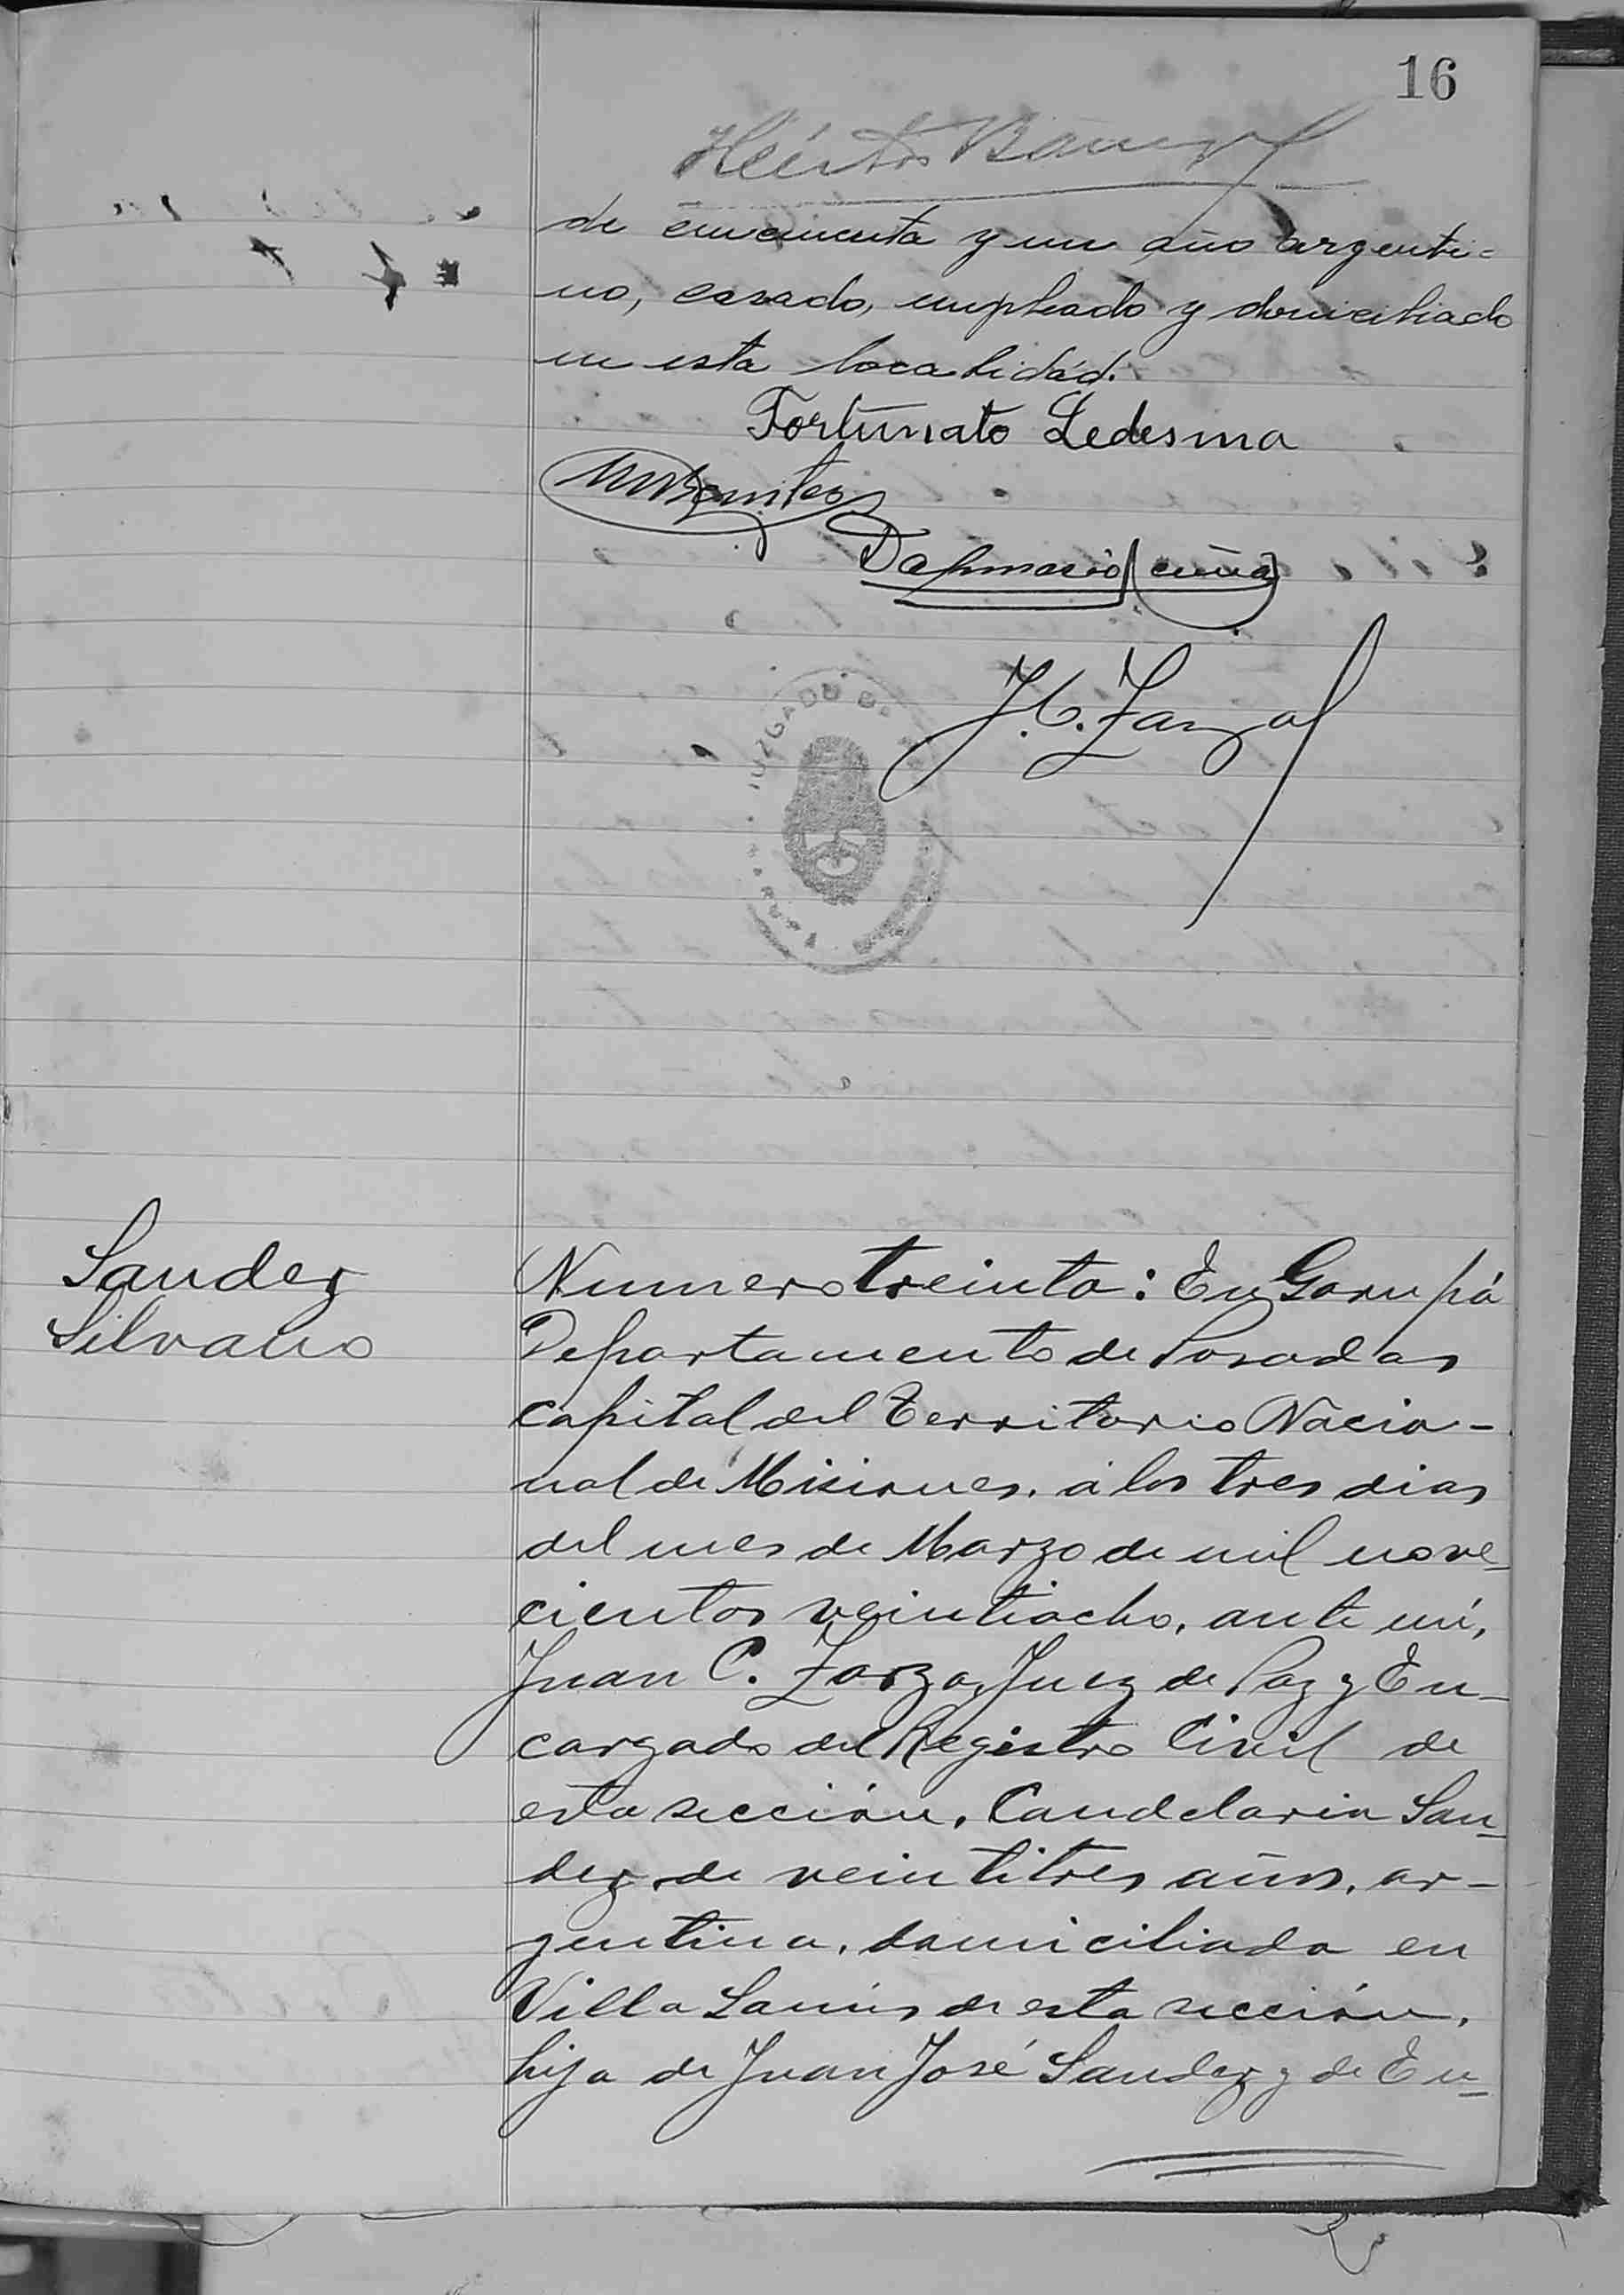 16
Héctor
de cincuenta y un año argenti=
no, casado, empleado y domiciliado
en esta localidád.
Fortunato Ledesma
Benites
Dapmacio Acuña
J. C. Zarza
JUZGADO DE
Numero treinta: En Garupá
Sander
Departamento de Posadas
Silvano
capital del Territorio Nacio-
nal de Misiones, á los tres dias
del mes de Marzo de mil nove-
cientos veintiocho, ante mí,
Juan C. Zarza, Juez de Paz y En-
cargado del Registro Civil de
esta sección, Candelaria San-
dez, de veintitres años, ar-
gentina, domiciliada en
Villa Lanús de esta sección,
hija de Juan José Sandez y de Eu-